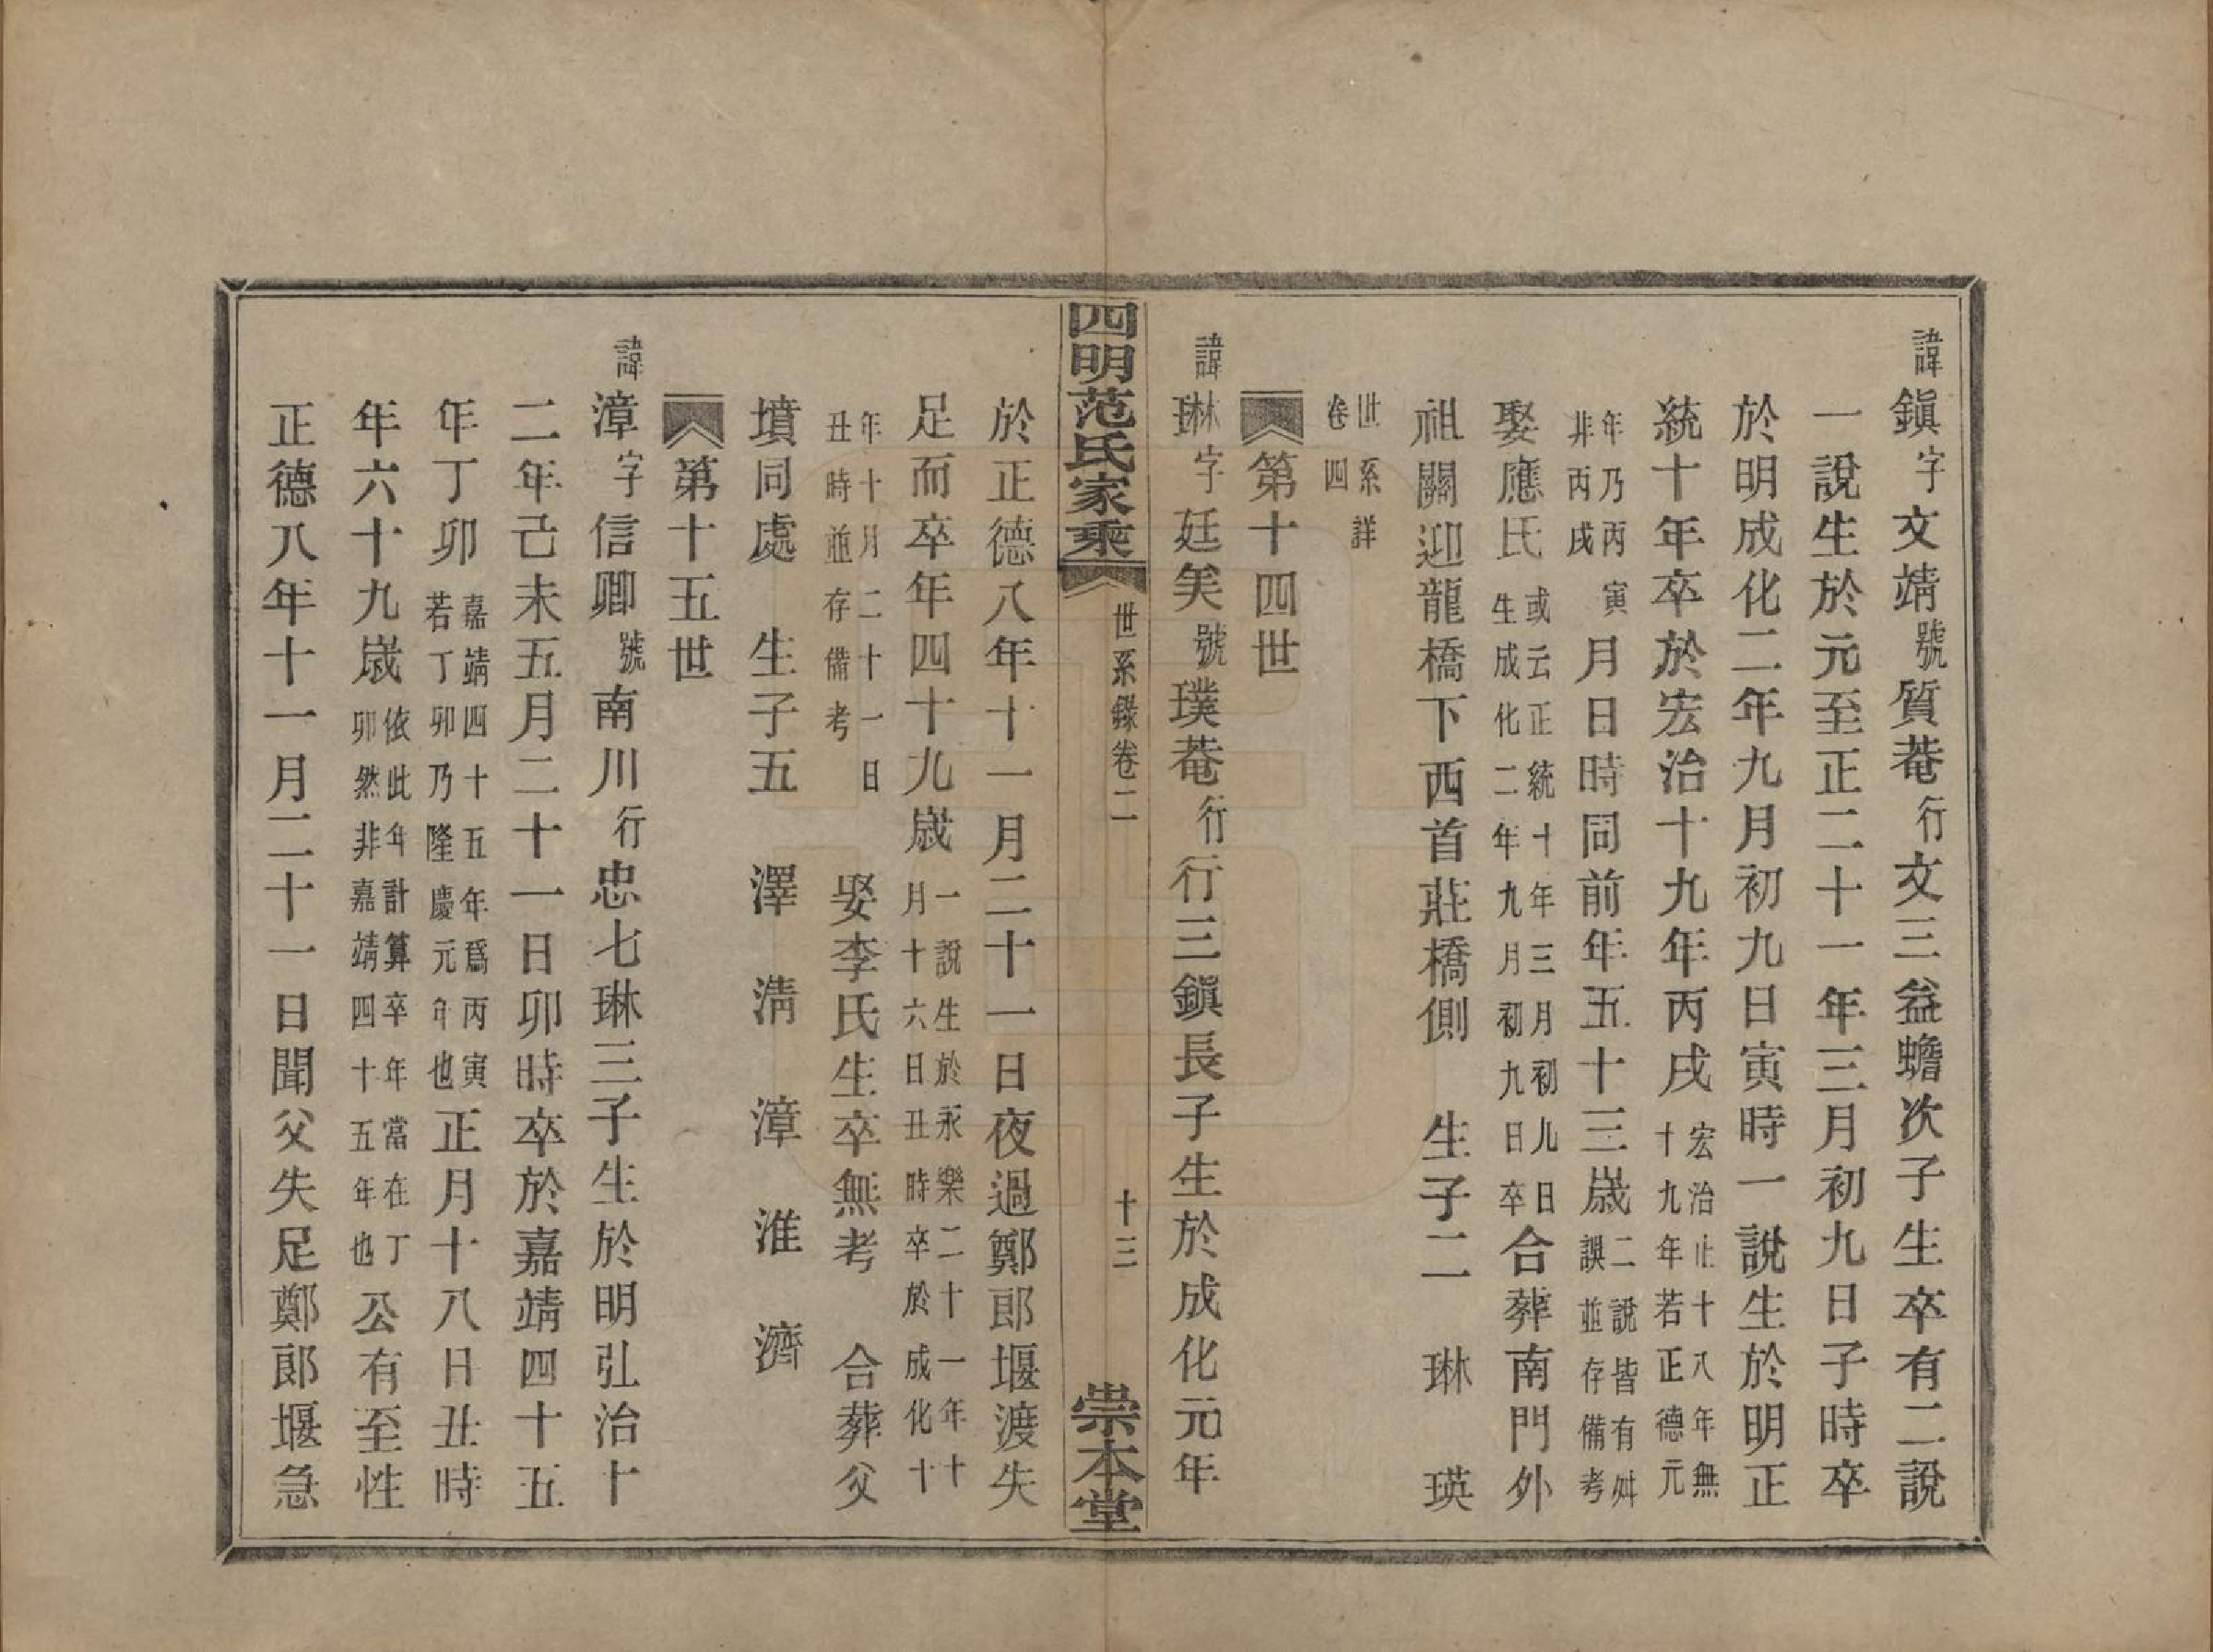 諱鎭字文靖號質菴行文三益蟾次子生卒有二說
一說生於元至正二十一年三月初九日子時卒
於明成化二年九月初九日寅時一說生於明正
統十年卒於宏治十九年丙戌宏治止十八年無十九年若正德元
年乃丙寅非丙戌月日時同前年五十三歲二說皆有舛誤並存備考
娶應氏或云正統十年三月初九日生成化二年九月初九日卒合葬南門外
祖關迎龍橋下西首莊橋側　生子二　琳　瑛
世系詳卷四
第十四世
諱琳字廷美號璞菴行行三鎭長子生於成化元年
四明范氏家乘　世系錄卷二　十三　崇本堂
於正德八年十一月二十一日夜過鄭郎堰渡失
足而卒年四十九歲一說生於永樂二十一年十月十六日丑時卒於成化十
年十月二十一日丑時並存備考　娶李氏生卒無考　合葬父
墳同處　生子五　澤　淸　漳　淮　濟
第十五世
諱漳字信卿號南川行忠七琳三子生於明弘治十
二年己未五月二十一日卯時卒於嘉靖四十五
年丁卯嘉靖四十五年爲丙寅若丁卯乃隆慶元年也正月十八日丑時
年六十九歲依此年計算卒年當在丁卯然非嘉靖四十五年也公有至性
正德八年十一月二十一日聞父失足鄭郎堰急